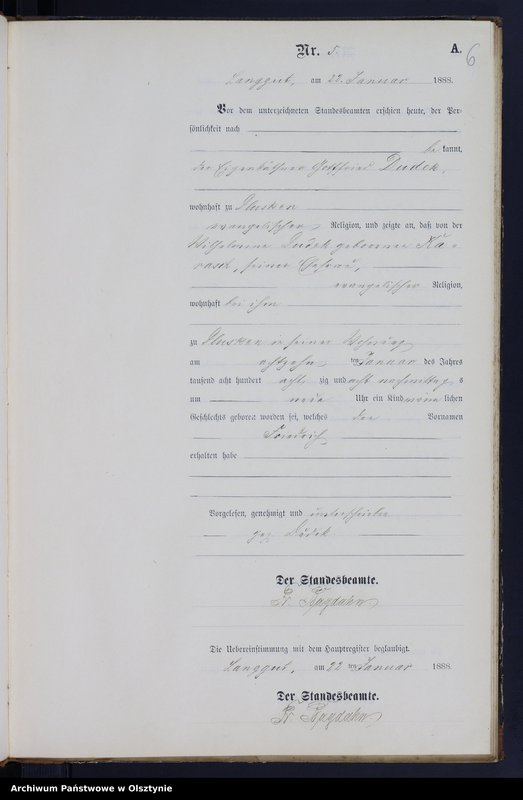 Nr. 5.
A.
6
Langgut, am 22. Januar 1888.
Vor dem unterzeichneten Standesbeamten erschien heute, der Per-
sönlichkeit nach
be kannt,
der Eigenkäthner Gottfried Dudek,
wohnhaft zu Plusken
evangelischer Religion, und zeigte an, daß von der
Wilhelmine Dudek geborenen Ka-
rasch, seiner Ehefrau,
evangelischer Religion,
wohnhaft bei ihm
zu Plusken in seiner Wohnung
am achtzehn ten Januar des Jahres
tausend acht hundert acht zig und acht nachmittag s
um neun Uhr ein Kind männ lichen
Geschlechts geboren worden sei, welches den Vornamen
Friedrich
erhalten habe
Vorgelesen, genehmigt und unterschrieben
gez. Dudek
Der Standesbeamte.
Bagdahn
Die Uebereinstimmung mit dem Hauptregister beglaubigt.
Langgut, am 22 ten Januar 1888.
Der Standesbeamte.
Bagdahn
Archiwum Państwowe w Olsztynie